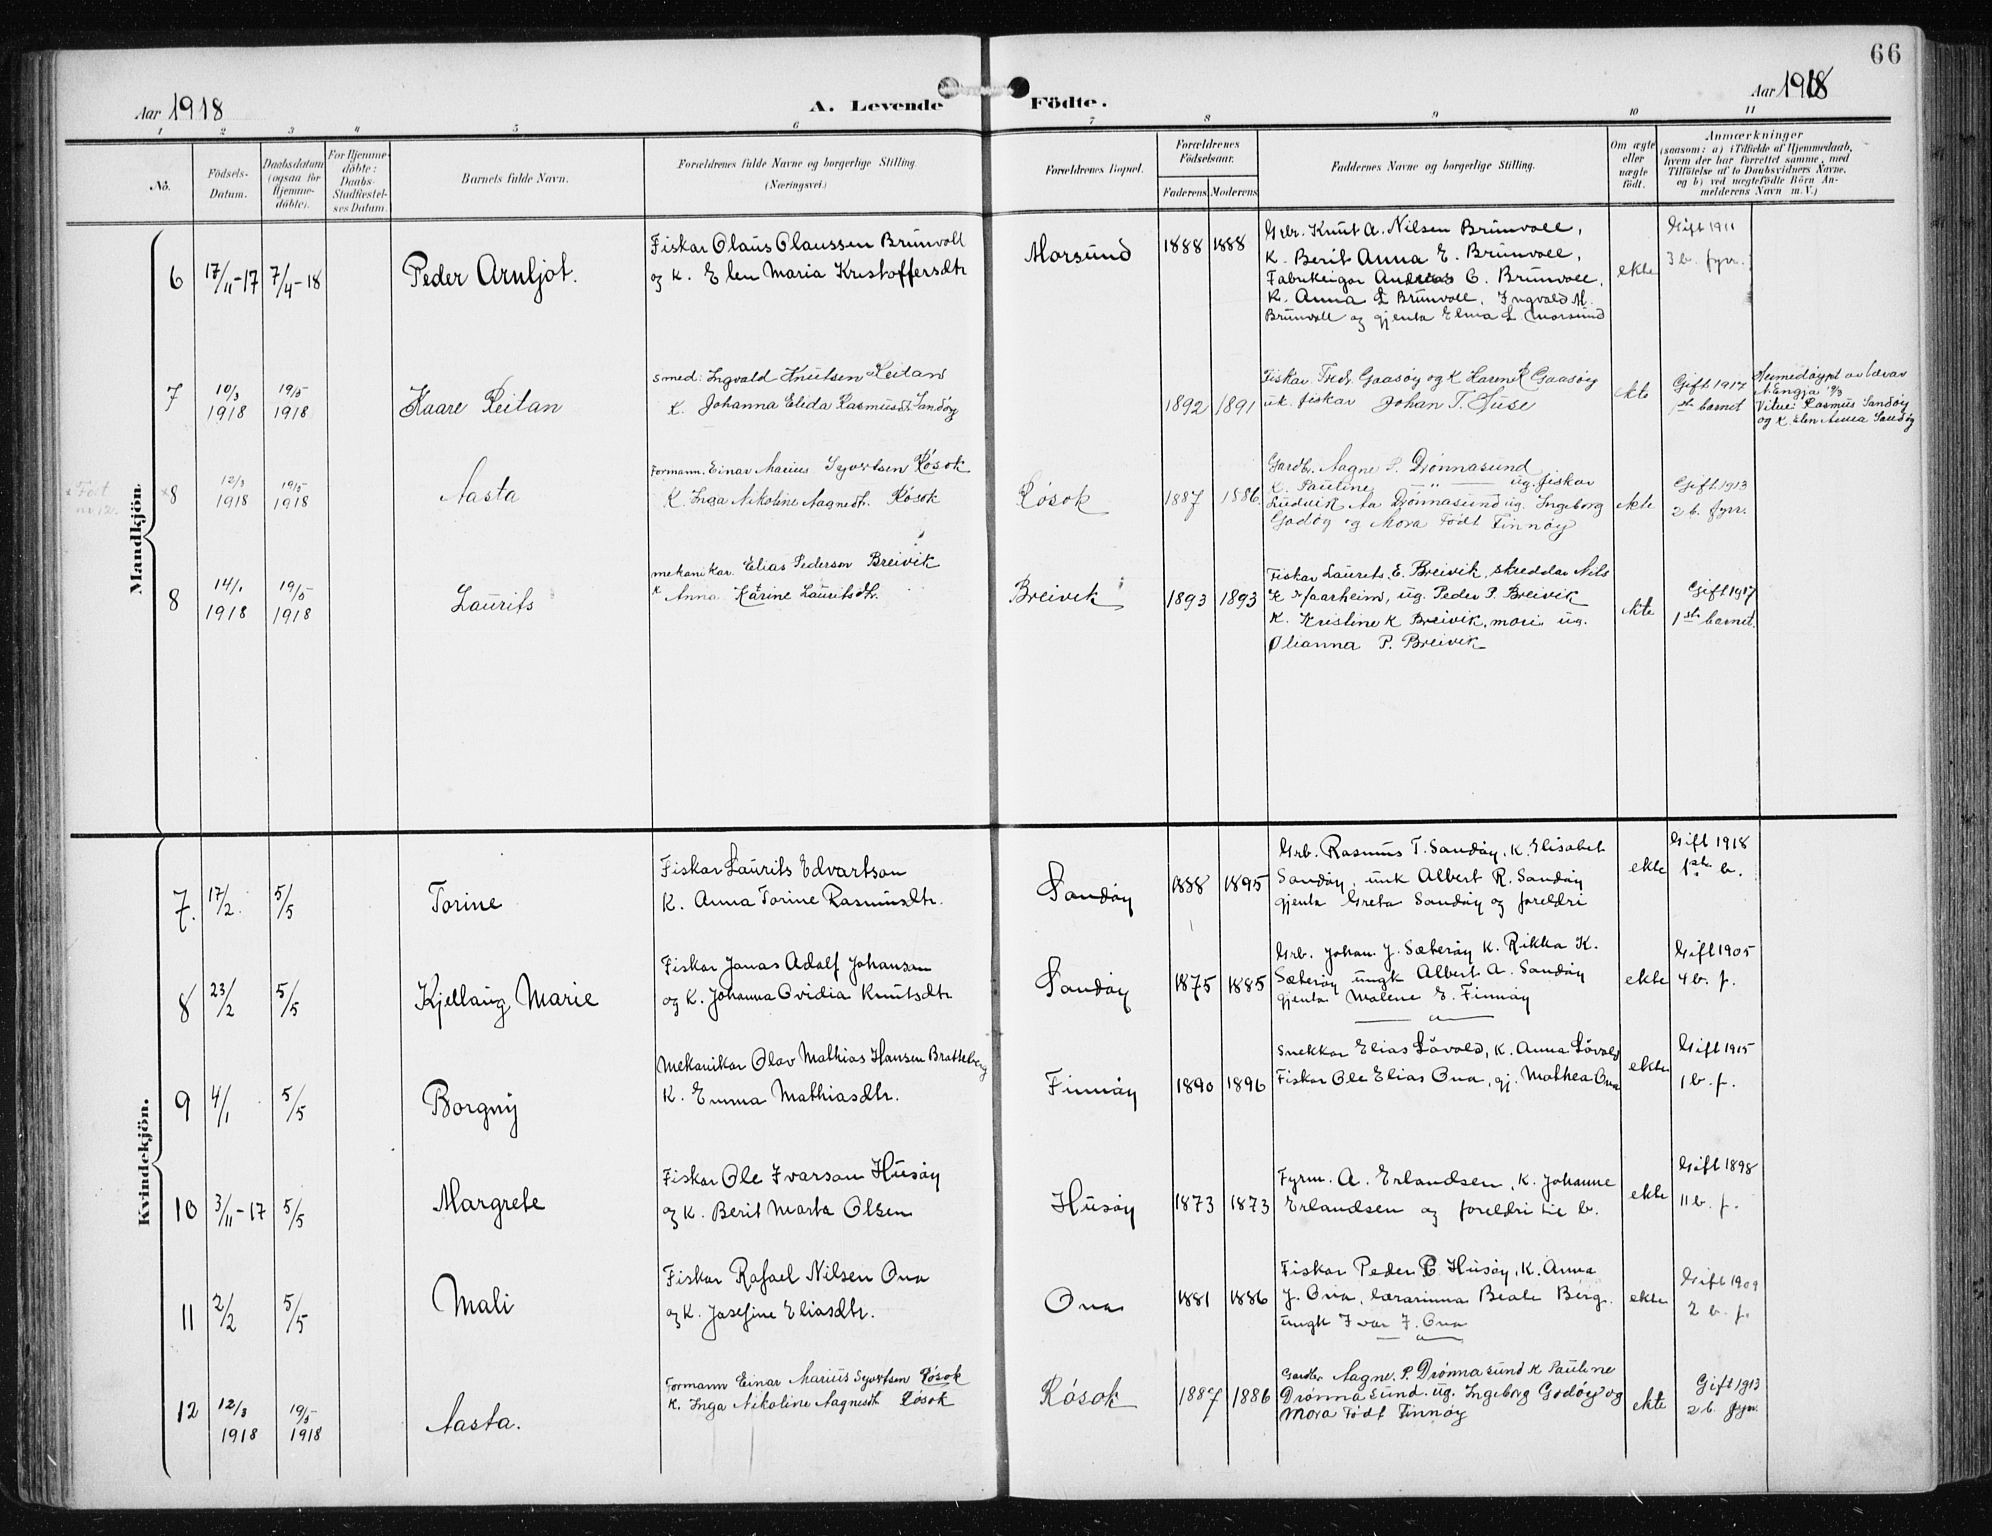 66
Aar 1918
A. Levende Födte.
Aar 1918
1 2 3 4 5 6 7 8 9 10 11
No.
Födsels-Datum.
Daabsdatum (ogsaa for Hjemme-döbte).
For Hjemme-döbte: Daabs-Stadfæstel-ses Datum.
Barnets fulde Navn.
Forældrenes fulde Navne og borgerlige Stilling.
(Næringsvei.)
Forældrenes Bopæl.
Forældrenes Födselsaar.
Faderens Moderens
Faddernes Navne og borgerlige Stilling.
Om ægte eller uægte födt.
Anmærkninger
(saasom: a) i Tilfælde af Hjemmedaab,
hvem der har forrettet samme, med
Tilföielse af to Daabsvidners Navne,
og b) ved uægtefödte Börn An-
melderens Navn m. V.)
Mandkjön.
6 17/11-17 7/4-18 Peder Arnljot.
Fiskar Olaus Olaussen Brunvoll
og K. Elen Maria Kristoffersdtr
Morsund 1888 1888
Grbr. Knut A. Nilsen Brunvoll,
K. Berit Anna E. Brunvoll,
Fabrikeigar Andreas C. Brunvoll,
K. Anna L Brunvoll, Ingvald M.
Brunvoll og gjenta Elma L. Morsund
ekte
Gift 1911
3 b. fyrr.
7 10/3 1918 19/5 1918 Kaare Reitan
Smed: Ingvald Knutsen Reitan
K. Johanna Elida Rasmusdt. Sandøy
1892 1891
Fiskar Fredr. Gaasøy og K Karen K Gaasøy
uk. fiskar Johan T. Huse
ekte
Gift 1917
1ste barnet
Heimedøypt av lærar
N. Engja 19/3
Vitne: Rasmus Sandøy
og K. Elen Anna Sandøy
x Ført nr 12.
x8 12/3 1918 19/5 1918 Aasta
Formann. Einar Marius Syvertsen Røsok
K. Inga Nikoline Aagnedt. Røsok
Røsok 1887 1886
Gardbr. Aagne P. Drønnasund
K. Pauline — " — ug. fiskar
Ludvik Aa Drønnasund ug. Ingeborg
Godøy og Mora Født Finnøy
ekte
Gift 1913
2 b. fyrr.
8 14/1 1918 19/5 1918 Laurits
mekanikar. Elias Pederson Breivik
K Anna Karine Lauritsdtr.
Breivik 1893 1893
Fiskar Laurits. E. Breivik, skreddar Nils
K. Breivik, ug. Peder P. Breivik
K. Kristine K Breivik, mori ug.
Olianna P. Breivik
ekte
Gift 1917
1ste barnet.
Kvindekjön.
7. 17/2. 5/5 Torine
Fiskar Laurits Edvartson
K. Anna Torine Rasmusdtr.
Sandøy 1888 1895
Grb. Rasmus T. Sandøy, K. Elisabet
Sandøy, unk Albert R. Sandøy
gjenta Greta Sandøy og foreldri
ekte
Gift 1918
1ste b.
8 23/2 5/5 Kjellaug Marie
Fiskar Jonas Adolf Johanson
og K. Johanna Ovidia Knutsdtr
Sandøy 1875 1885
Grb. Johan J. Sæterøy K. Rikka K.
Sæterøy ungk Albert A. Sandøy
gjenta Malene E. Finnøy
ekte
Gift 1905
4 b. f.
9 4/1 5/5 Borgny
Mekanikar Olav Mathias Hansen Bratteberg
K. Emma Mathiasdtr.
Finnøy 1890 1896
Snekkar Elias Løvold, K. Anna Løvold
Fiskar Ole Elias Ona, gj. Mathea Ona
ekte
Gift 1915
1 b. f.
10 3/11-17 5/5 Margrete
Fiskar Ole Ivarson Husøy
og K. Berit Marta Olsen
Husøy 1873 1873
Fyrm. A. Erlandsen, K. Johanne
Erlandsen og foreldri til b.
ekte
Gift 1898
11 b. f.
11 2/2 5/5 Mali
Fiskar Rafael Nilsen Ona
og K. Josefine Eliasdtr.
Ona 1881 1886
Fiskar Peder P Husøy, K. Anna
J. Ona, lærarinna Beate Berg.
ungk Ivar J. Ona
ekte
Gift 1909
2 b. f.
12 12/3 1918 19/5 1918 Aasta.
Formann Einar Marius Syvertsen Røsok
K. Inga Nikoline Aagnesdt Røsok
Røsok 1887 1886
Gardbr Aagne. P. Drønnasund K Pauline
Drønnasund. ug. Ingeborg Godøy og
Mora Født Finnøy
ekte
Gift 1913
2 b. fyrr.